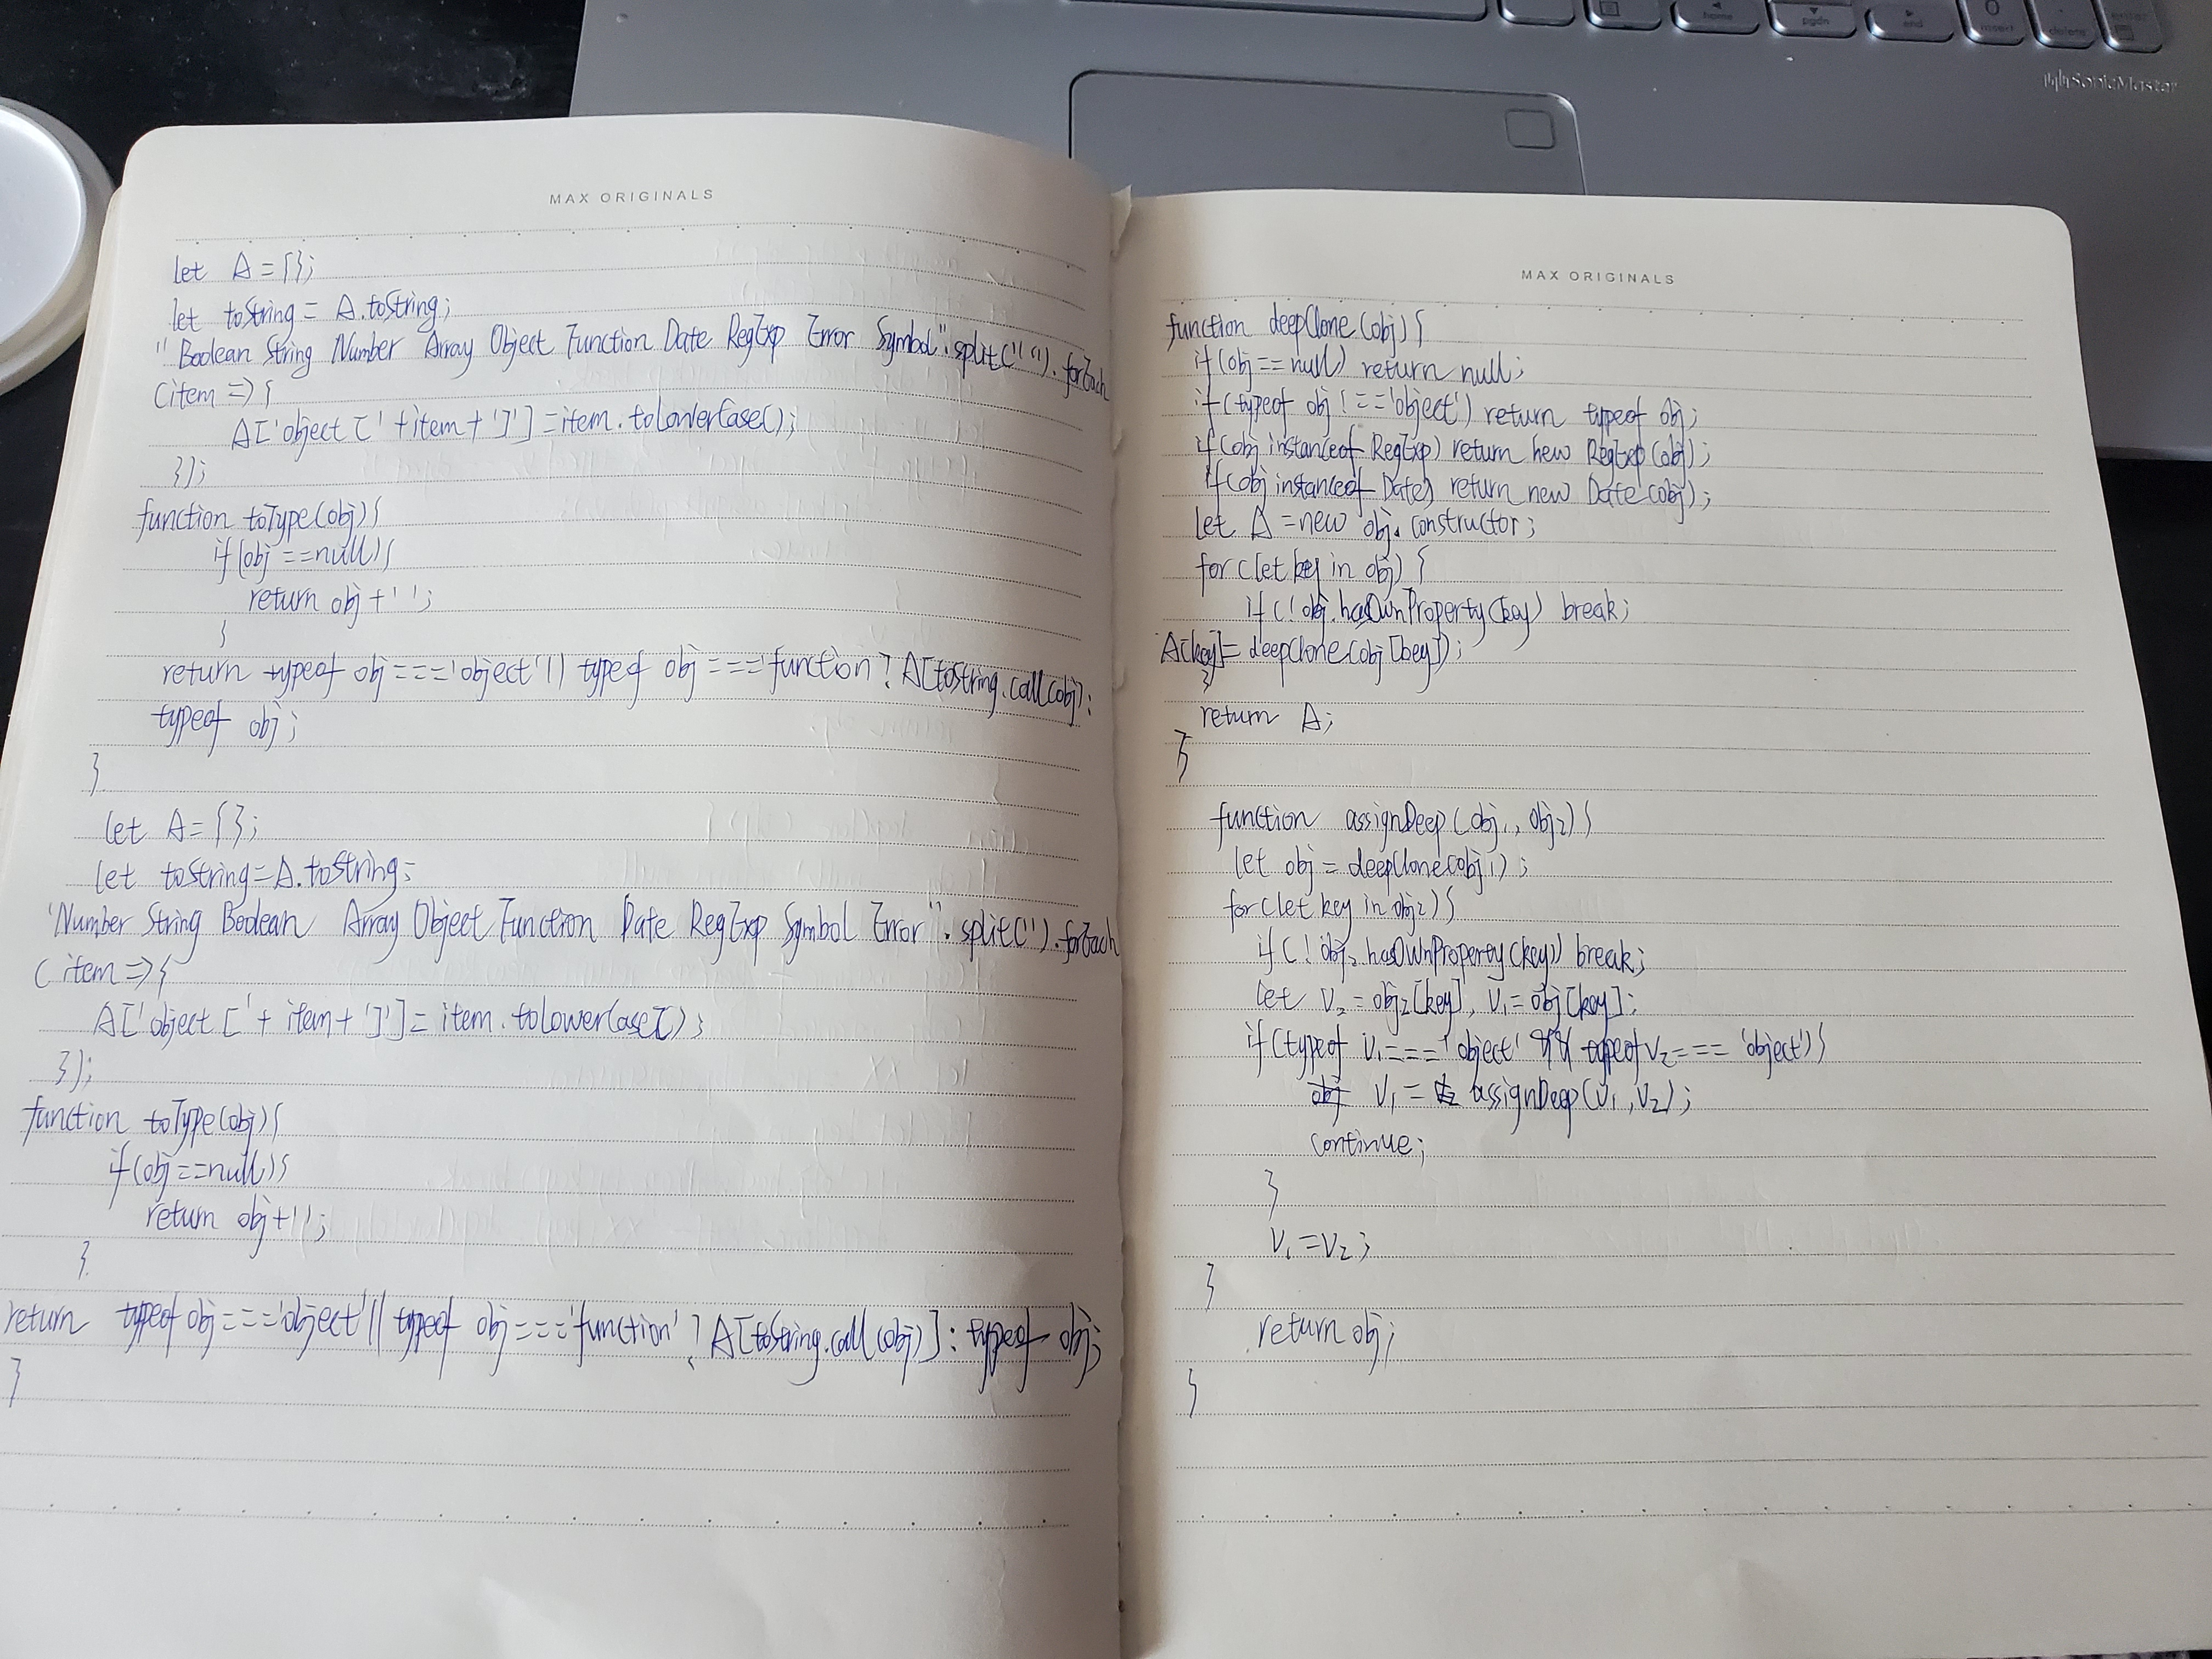 MAX ORIGINALS
let A={};
let toString = A.toString;
"Boolean String Number Array Object Function Date RegExp Error Symbol".split(" ").forEach
(item=>{
A['object ['+item+']']=item.toLowerCase();
});
function toType(obj){
if(obj==null){
return obj+'';
}
return typeof obj==='object'|| typeof obj==='function? A[toString.call(obj):
typeof obj;
}
let A={};
let toString=A.toString;
'Number String Boolean Array Object Function Date RegExp Symbol Error".split('').forEach
(item=>{
A['object ['+ item+']']= item.toLowerCase[);
});
function toType(obj){
if(obj==null){
return obj+'';
}
return typeof obj==='object'|| typeof obj==='function' ? A[toString.call(obj)]: typeof obj;
}
MAX ORIGINALS
function deepClone(obj){
if(obj==null) return null;
if(typeof obj!=='object') return typeof obj;
if(obj instanceof RegExp) return new RegExp(obj);
if(obj instanceof Date) return new Date(obj);
let A=new obj.constructor;
for(let key in obj) {
if(!obj.hasOwnProperty(key) break;
A[key]= deepClone(obj[key]);
}
return A;
}
function assignDeep(obj1, obj2){
let obj = deepClone(obj1);
for(let key in obj2){
if(!obj2.hasOwnProperty(key)) break;
let v2=obj2[key], v1=obj[key];
if(typeof v1==='object' && typeof v2=== 'object'){
v1= assignDeep(v1,v2);
continue;
}
v1=v2;
}
return obj;
}
SonicMaster
home
pgdn
end
0
insert
.
delete